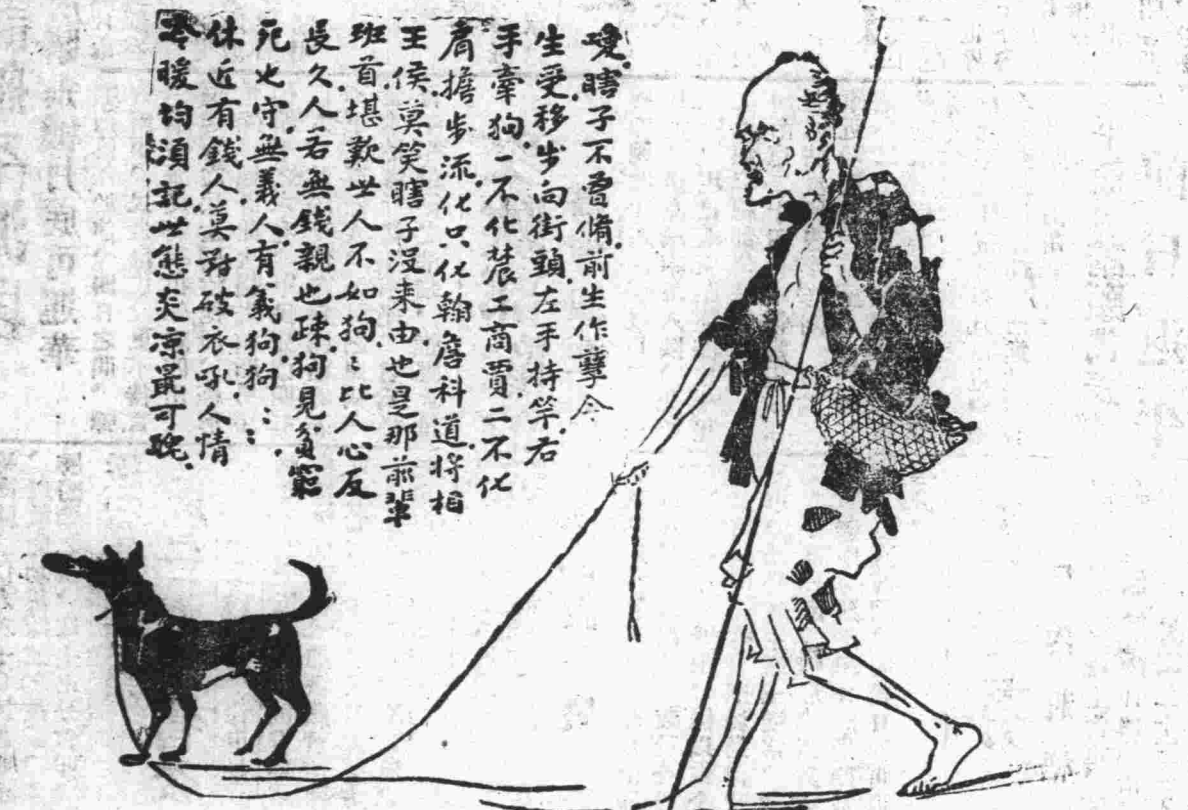 嗳瞎子不曾脩前生作孽今
生受移步向街頭左手持竿右
手牽狗一不化農工商賈二不化
肩擔步流化只化翰詹科道將相
王侯莫笑瞎子沒來由也是那前輩
班首堪歎世人不如狗〻比人心反
長久人若無錢親也疎狗見貧窮
死也守無義人有義狗狗〻〻
休近有錢人莫對破衣吼人情
冷暖均須記世態炎凉最可